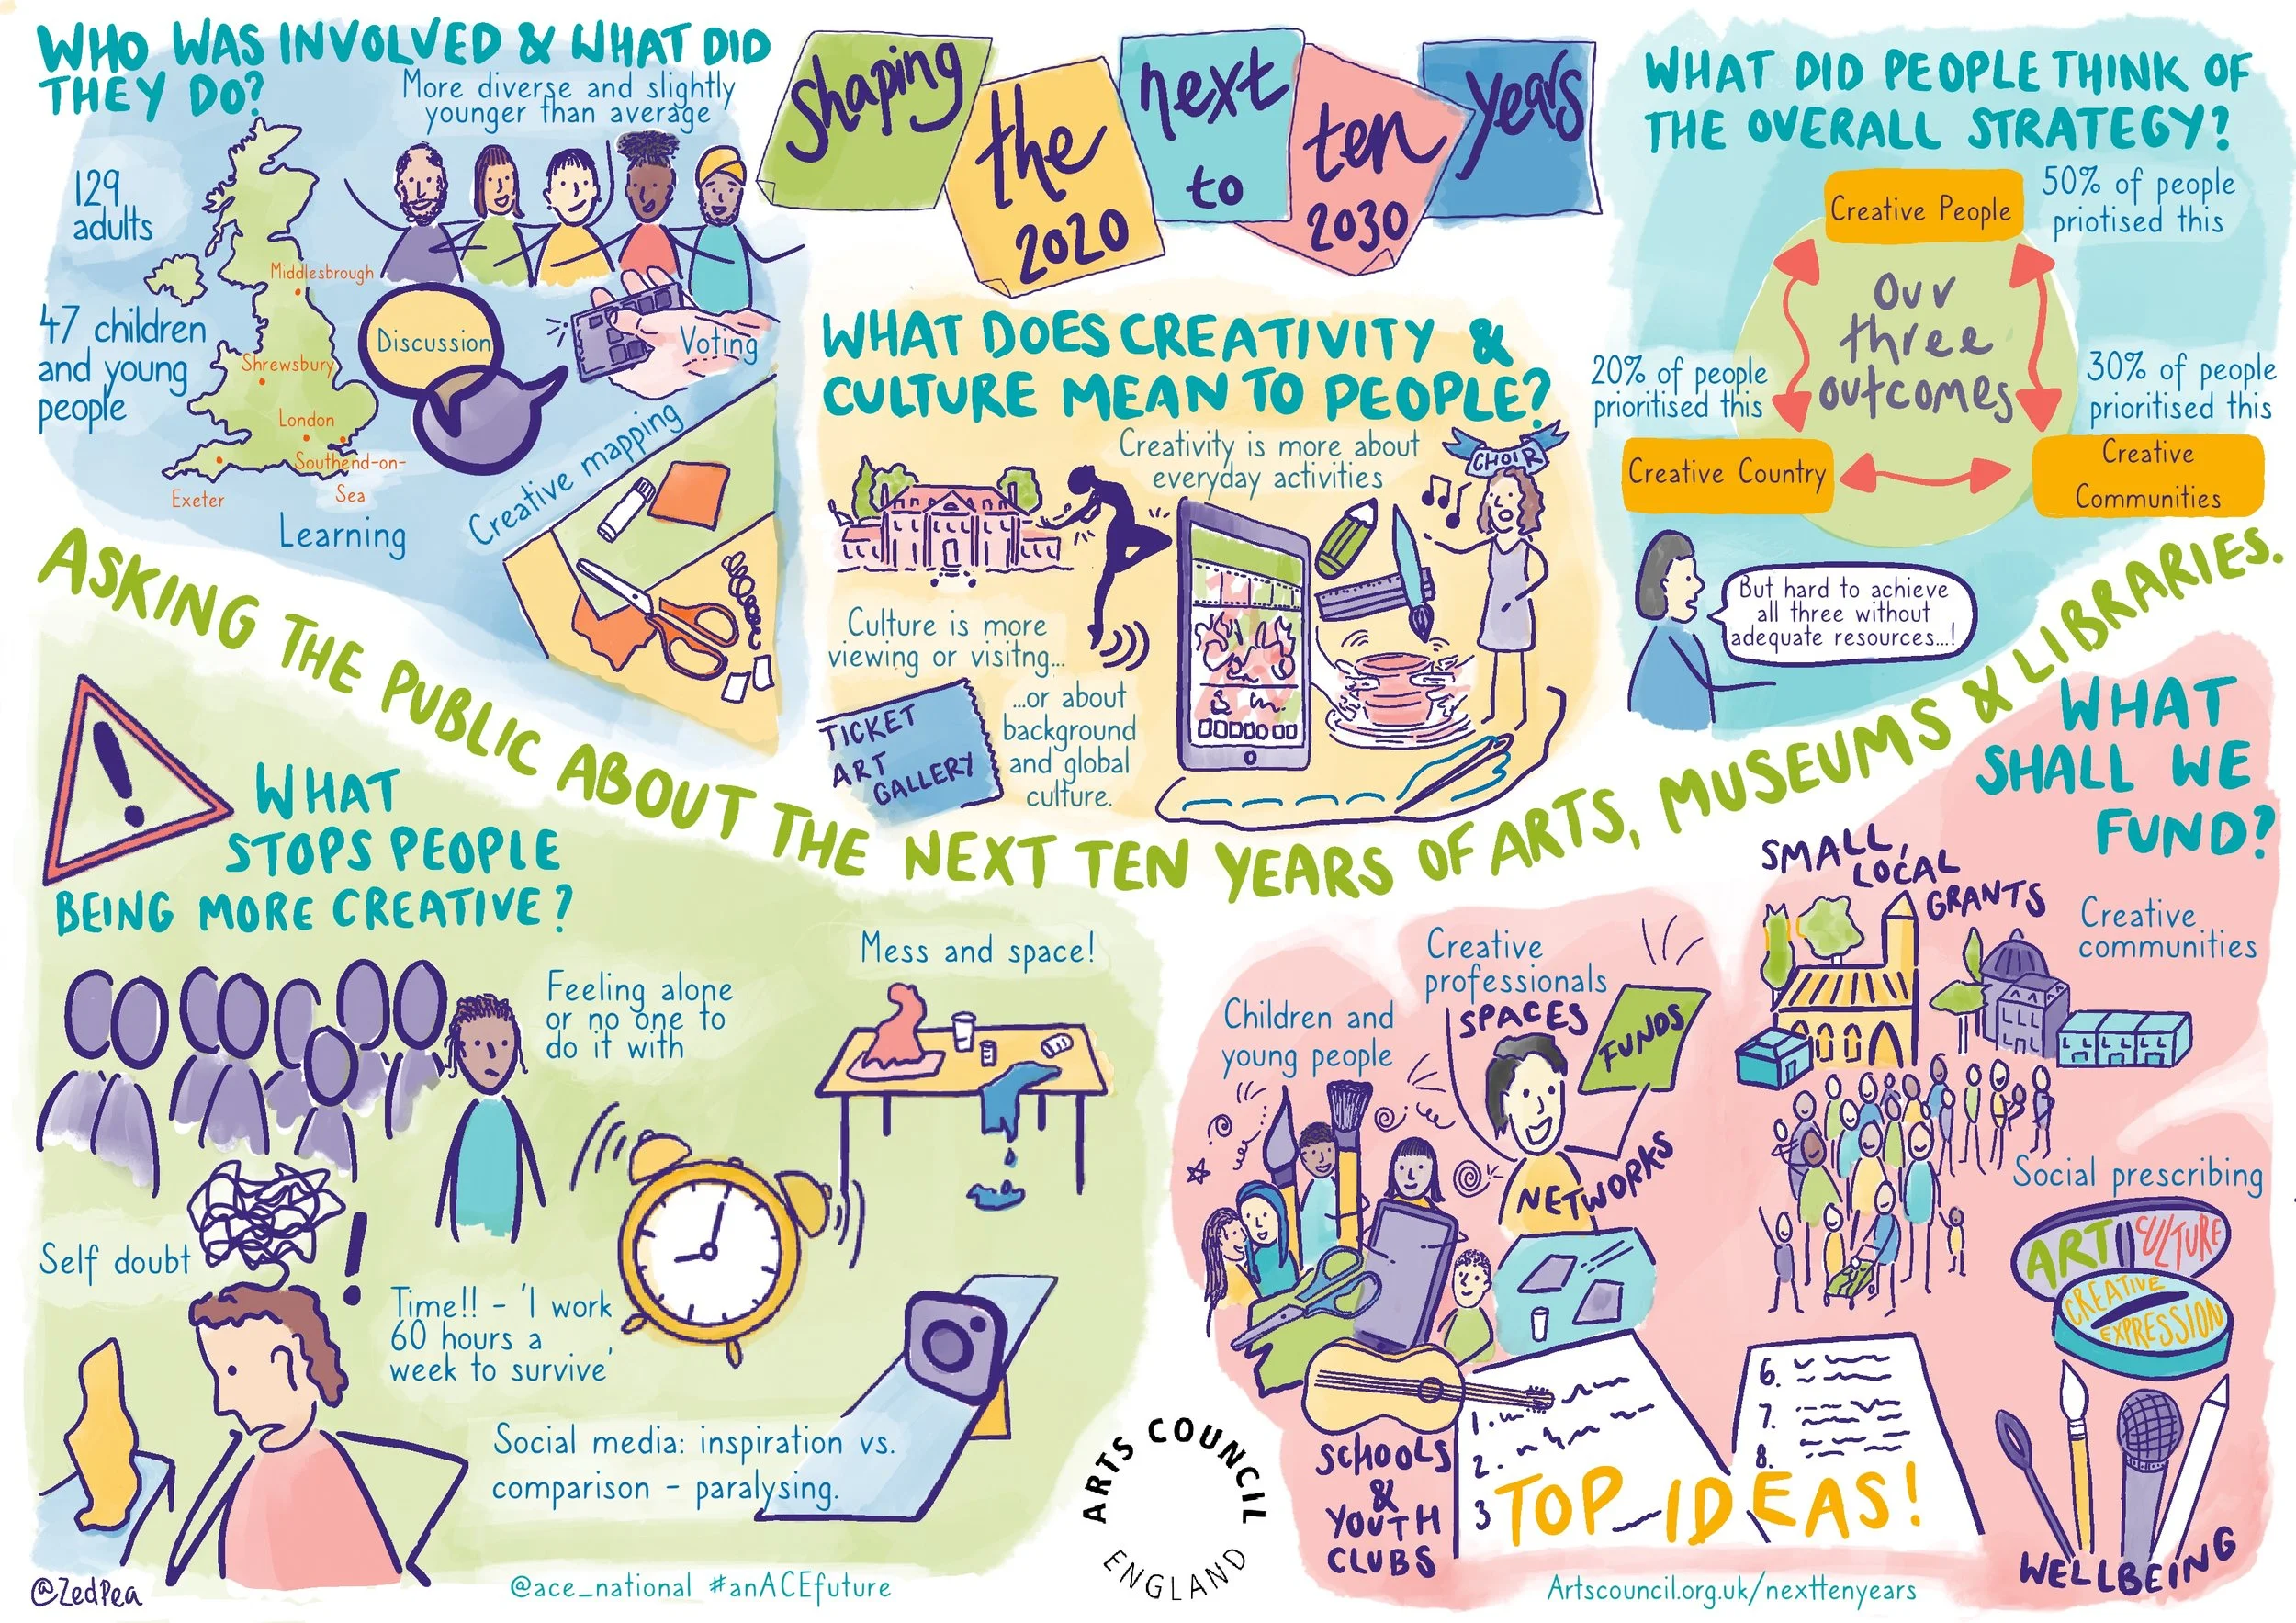 WHO WAS INVOLVED & WHAT DID
THEY DO?
More diverse and slightly
younger than average
129
adults
47 children
and young
people
Middlesbrough
Shrewsbury
London
Southend-on-
Sea
Exeter
Learning
Discussion
Voting
Creative mapping
shaping
the
next
ten
years
2020
to
2030
WHAT DOES CREATIVITY &
CULTURE MEAN TO PEOPLE?
Creativity is more about
everyday activities
CHOIR
Culture is more
viewing or visitng...
...or about
background
and global
culture.
TICKET
ART
GALLERY
WHAT DID PEOPLE THINK OF
THE OVERALL STRATEGY?
Creative People
50% of people
priotised this
Our
three
outcomes
20% of people
prioritised this
30% of people
prioritised this
Creative Country
Creative
Communities
But hard to achieve
all three without
adequate resources...!
ASKING THE PUBLIC ABOUT THE NEXT TEN YEARS OF ARTS, MUSEUMS & LIBRARIES.
WHAT
STOPS PEOPLE
BEING MORE CREATIVE?
Feeling alone
or no one to
do it with
Mess and space!
Self doubt
Time!! - 'I work
60 hours a
week to survive'
Social media: inspiration vs.
comparison - paralysing.
WHAT
SHALL WE
FUND?
SMALL,
LOCAL
GRANTS
Creative
communities
Creative
professionals
SPACES
FUNDS
NETWORKS
Children and
young people
Social prescribing
ART
CULTURE
CREATIVE
EXPRESSION
SCHOOLS
&
YOUTH
CLUBS
1.
2.
3
6.
7.
8.
TOP IDEAS!
WELLBEING
ARTS COUNCIL
ENGLAND
@ZedPea
@ace_national #anACEfuture
Artscouncil.org.uk/nexttenyears